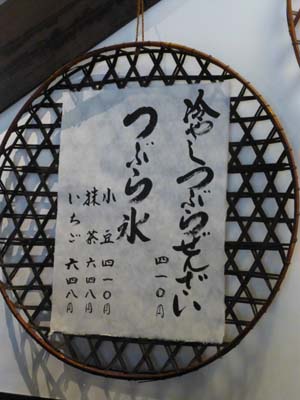 冷やしつぶらぜんざい
四一〇円
つぶら氷
小豆 四一〇円
抹茶 六四八円
いちご 六四八円